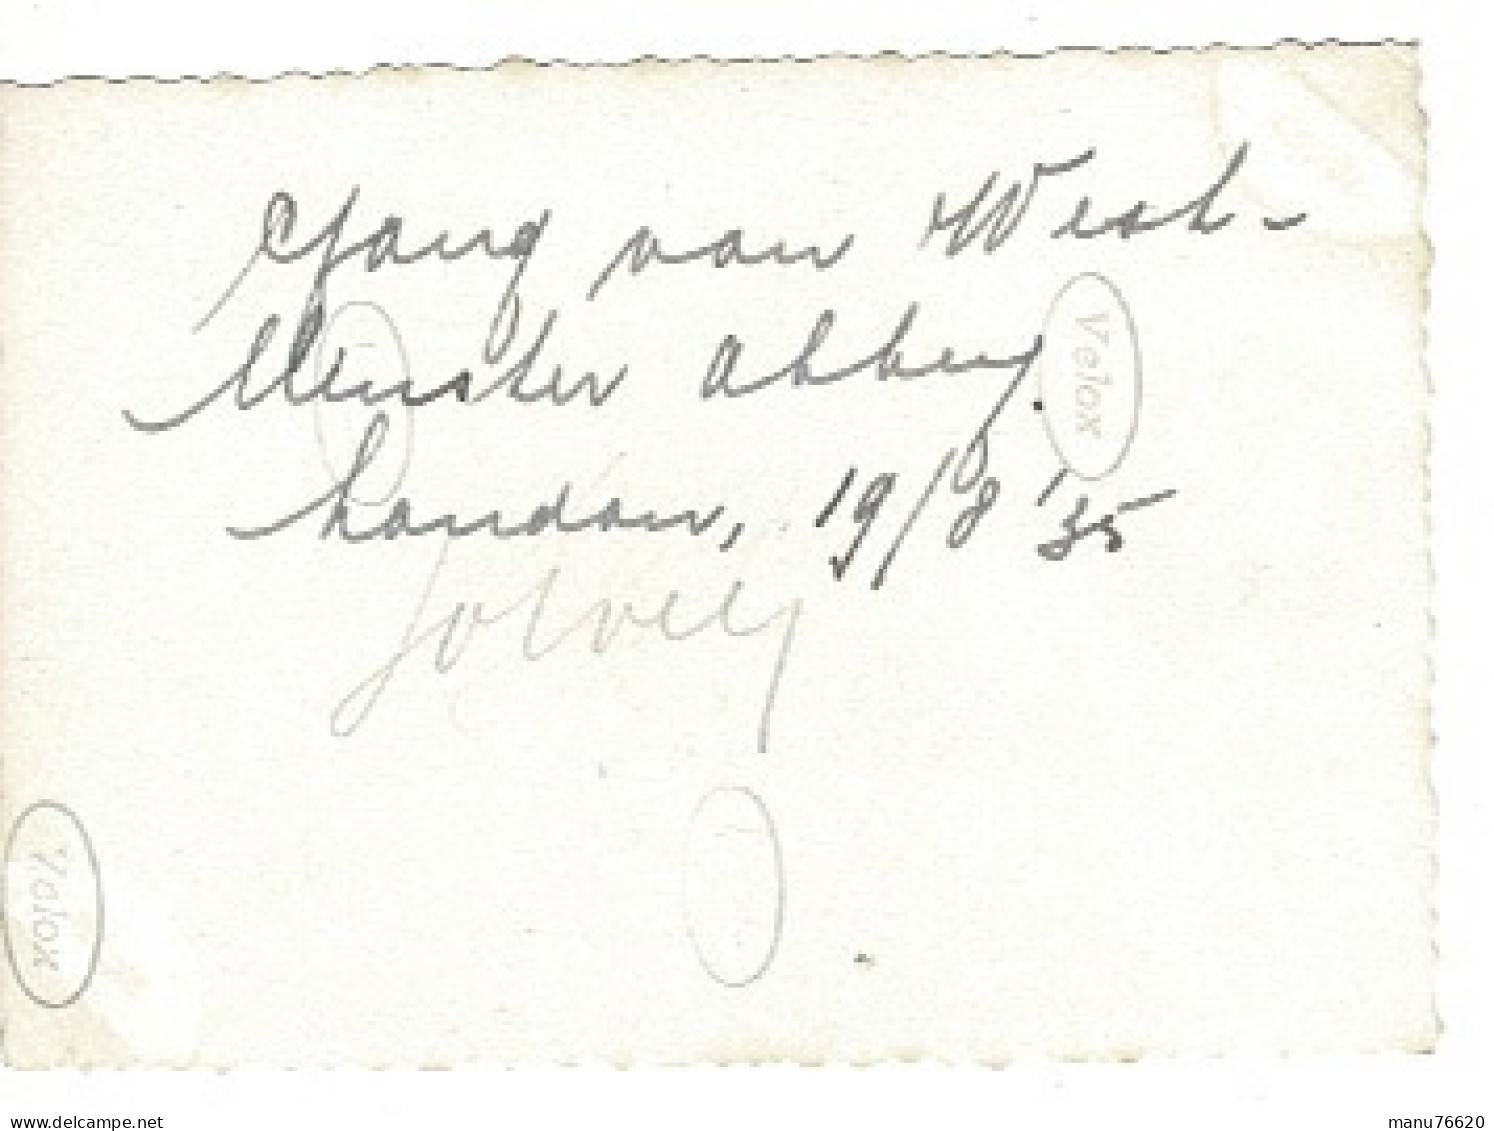 Gang van West-
Minster abbey.
London, 19/8 '35
Velox
Velox
delcampe.net
manu76620